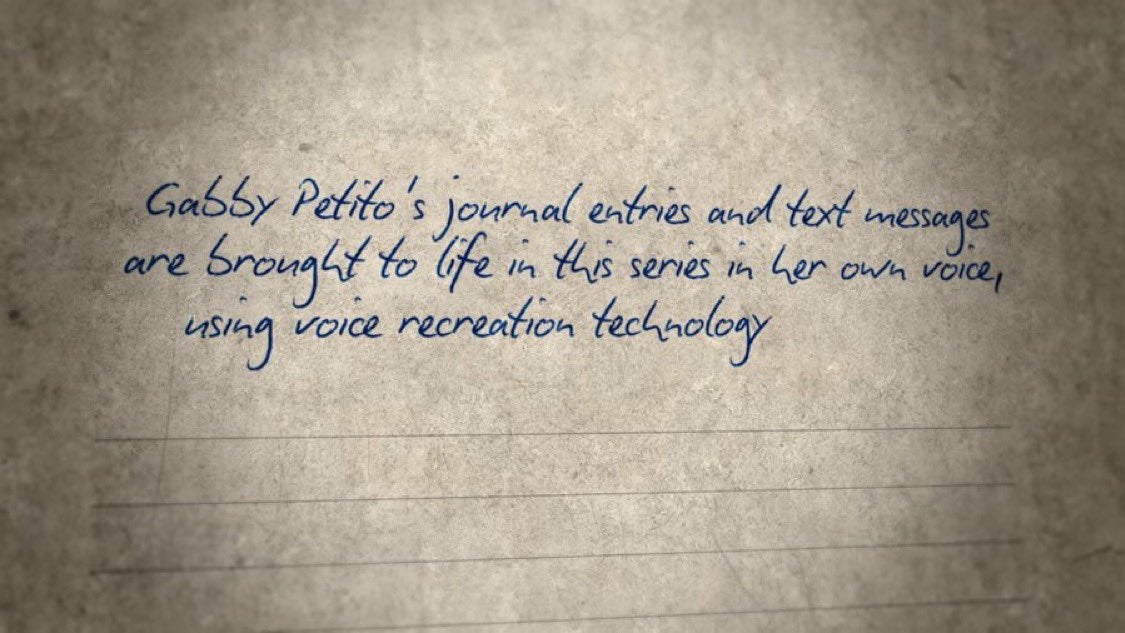 Gabby Petito's journal entries and text messages
are brought to life in this series in her own voice,
using voice recreation technology